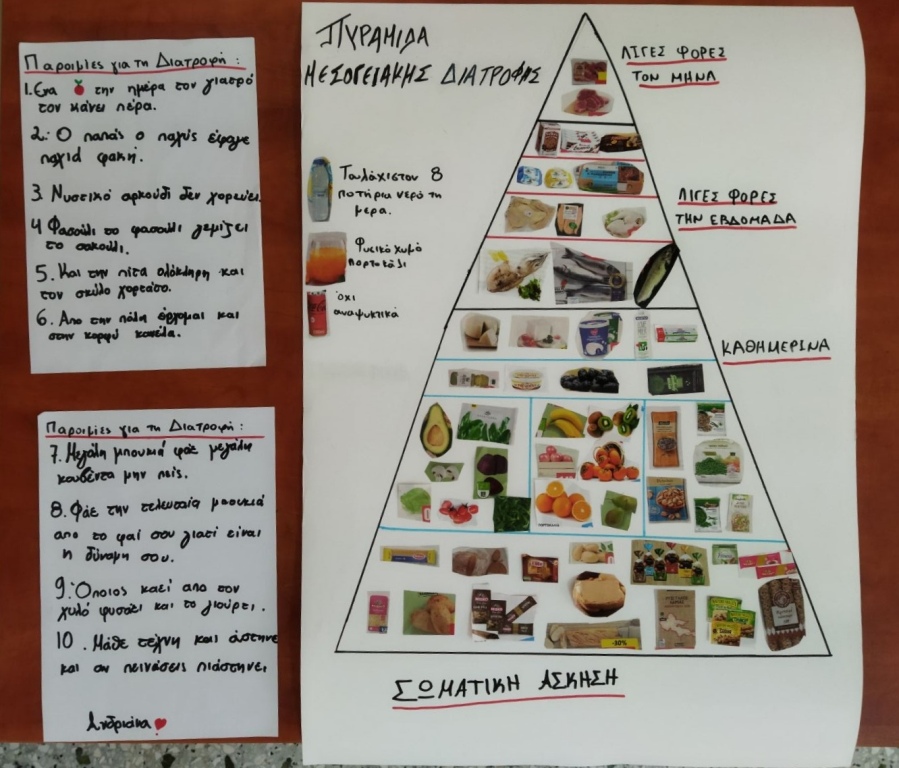 Παροιμίες για τη Διατροφή :
1. Ενα την ημέρα τον γιατρό
τον κάνει πέρα.
2. Ο παπάς ο παχύς έφαγε
παχιά φακή.
3. Νυστικό αρκούδι δεν χορεύει
4 Φασούλι το φασούλι γεμίζει
το σακούλι.
5. Και την πίτα ολόκληρη και
τον σκύλο χορτάτο.
6. Απο την πόλη έρχομαι και
στην κορφή κανέλα.
Παροιμίες για τη Διατροφή :
7. Μεγάλη μπουκιά φάε μεγάλη
κουβέντα μην πείς.
8. Φάε την τελευταία μπουκιά
απο το φαί σου γιατί είναι
η δύναμη σου.
9. Όποιος καεί απο τον
χυλό φυσάει και το γιούρτι.
10. Μάθε τέχνη και άστηνε
και αν πεινάσεις πιάστηνε
Ανδριάνα
ΠΥΡΑΜΙΔΑ
ΜΕΣΟΓΕΙΑΚΗΣ ΔΙΑΤΡΟΦΗΣ
Τουλάχιστον 8
ποτήρια νερό τη
μερα.
Φυσικό χυμό
πορτοκάλι
όχι
αναψυκτικά
ΛΙΓΕΣ ΦΟΡΕΣ
ΤΟΝ ΜΗΝΑ
ΛΙΓΕΣ ΦΟΡΕΣ
ΤΗΝ ΕΒΔΟΜΑΔΑ
ΚΑΘΗΜΕΡΙΝΑ
-30%
ΣΩΜΑΤΙΚΗ ΑΣΚΗΣΗ